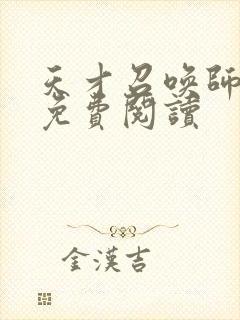 天才召喚師
免費閱讀
金漢吉